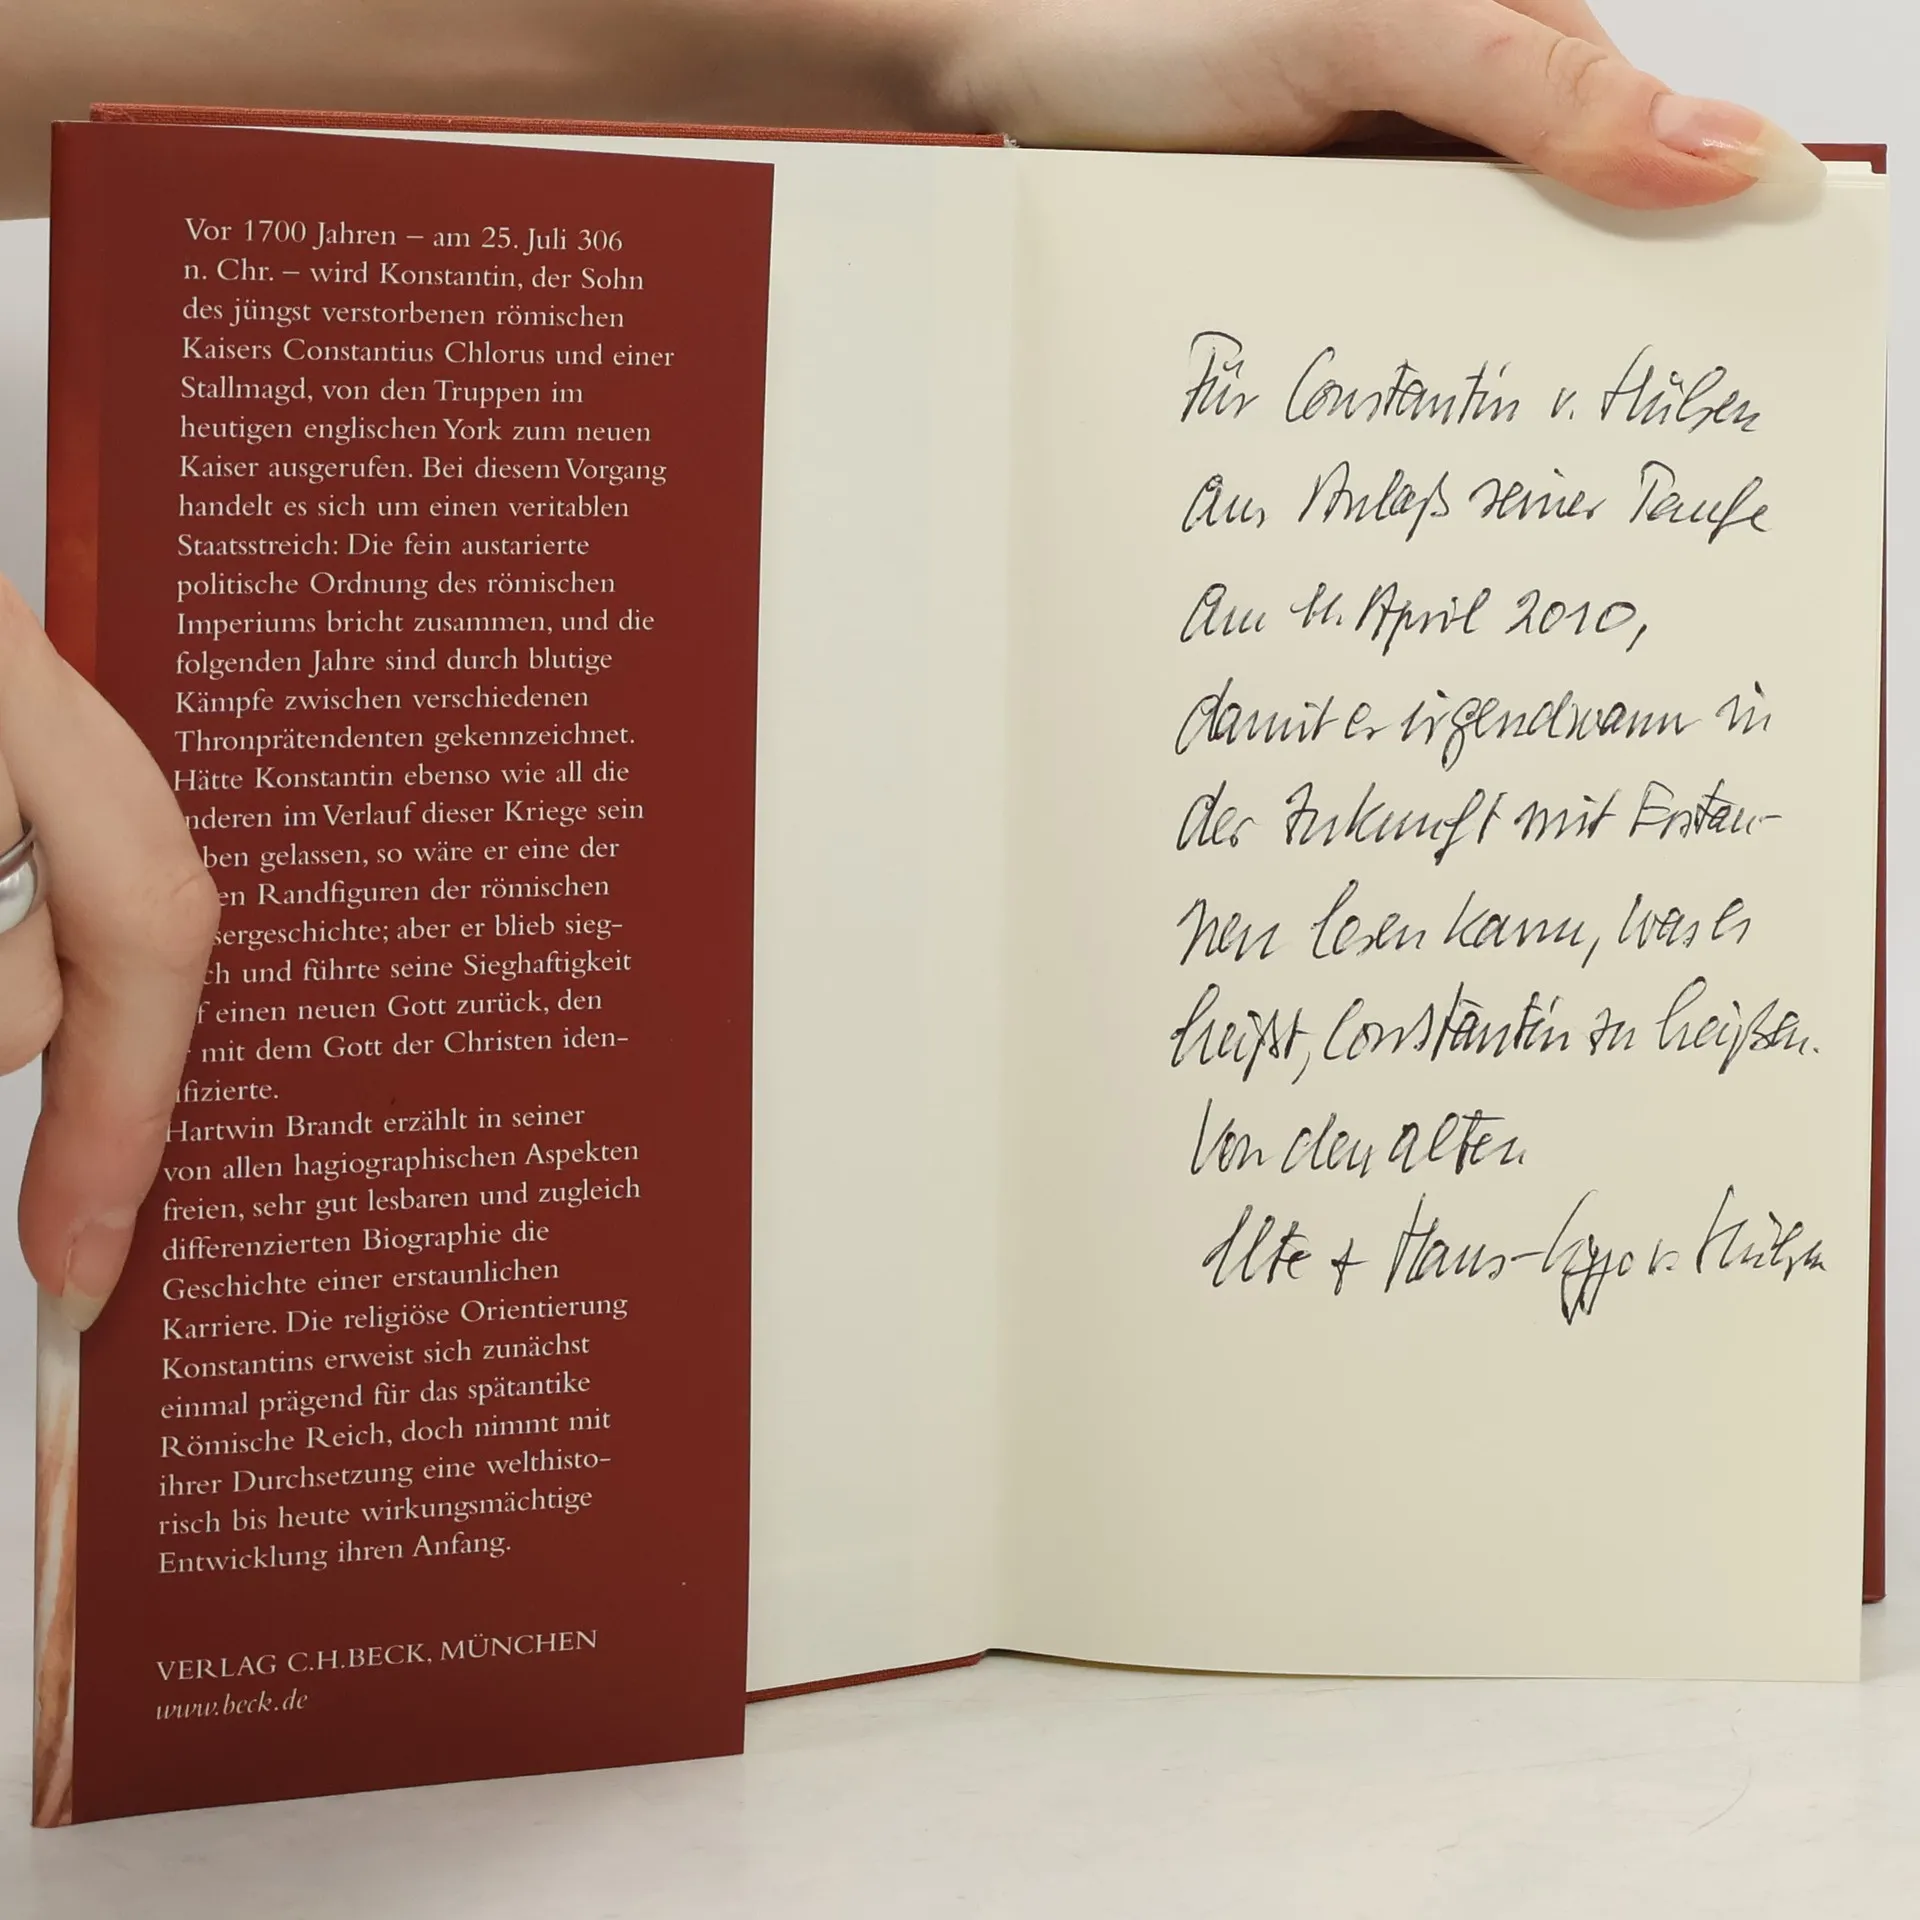 Vor 1700 Jahren – am 25. Juli 306
n. Chr. – wird Konstantin, der Sohn
des jüngst verstorbenen römischen
Kaisers Constantius Chlorus und einer
Stallmagd, von den Truppen im
heutigen englischen York zum neuen
Kaiser ausgerufen. Bei diesem Vorgang
handelt es sich um einen veritablen
Staatsstreich: Die fein austarierte
politische Ordnung des römischen
Imperiums bricht zusammen, und die
folgenden Jahre sind durch blutige
Kämpfe zwischen verschiedenen
Thronprätendenten gekennzeichnet.
Hätte Konstantin ebenso wie all die
nderen im Verlauf dieser Kriege sein
ben gelassen, so wäre er eine der
en Randfiguren der römischen
sergeschichte; aber er blieb sieg-
ch und führte seine Sieghaftigkeit
f einen neuen Gott zurück, den
mit dem Gott der Christen iden-
ifizierte.
Hartwin Brandt erzählt in seiner
von allen hagiographischen Aspekten
freien, sehr gut lesbaren und zugleich
differenzierten Biographie die
Geschichte einer erstaunlichen
Karriere. Die religiöse Orientierung
Konstantins erweist sich zunächst
einmal prägend für das spätantike
Römische Reich, doch nimmt mit
ihrer Durchsetzung eine welthisto-
risch bis heute wirkungsmächtige
Entwicklung ihren Anfang.
VERLAG C.H.BECK, MÜNCHEN
www.beck.de
Für Constantin v. Hülsen
aus Anlaß seiner Taufe
am 11. April 2010,
damit er irgendwann in
der Zukunft mit Erstau-
nen lesen kann, was es
heißt, Constantin zu heißen.
Von den alten
+ Hans- v. Hülsen